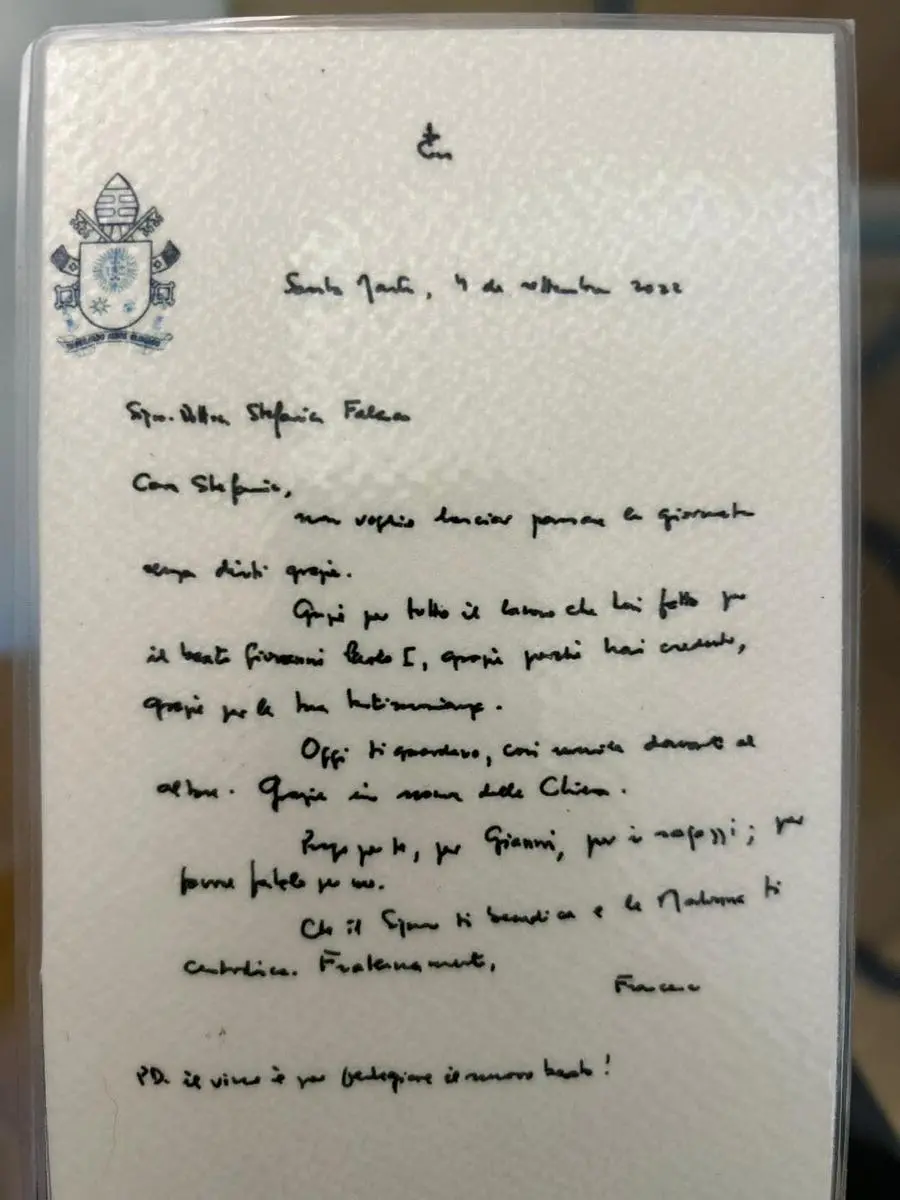 Santa Marta, 4 de settembre 2022
Sig.ra Dott.ssa Stefania Falasca
Cara Stefania,
non voglio lasciar passare la giornata
senza dirti grazie.
Grazie per tutto il lavoro che hai fatto per
il beato Giovanni Paolo I, grazie perché hai creduto,
grazie per la tua testimonianza.
Oggi ti guardavo, così davanti al
altare. Grazie in nome della Chiesa.
Prego per te, per Gianni, per i ragazzi; per
favore fatelo per me.
Che il Signore ti benedica e la Madonna ti
custodisca. Fraternamente,
Francesco
PD. il vino è per festegiare il nuovo beato!